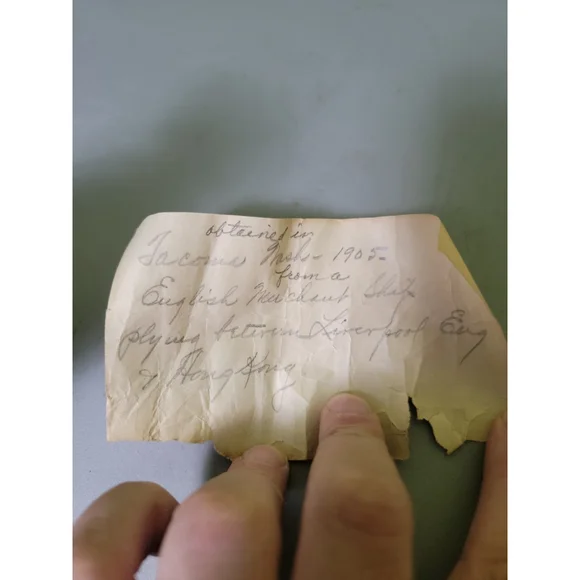 obtained in
Tacoma Wash - 1905 -
from a
English Merchant Ship
plying between Liverpool Eng
& Hong Kong